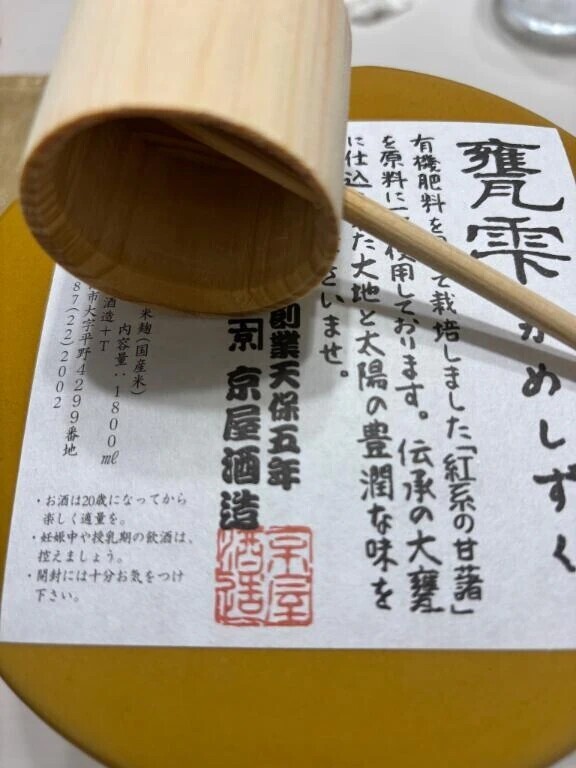 甕雫
かめしずく
有機肥料を て栽培しました「紅系の甘藷」
を原料に 使用しております。伝承の大甕
に仕込 た大地と太陽の豊潤な味を
さいませ。
創業天保五年
京屋酒造
京屋
酒造
米麹(国産米)
内容量:1800㎖
酒造+T
市大字平野4299番地
87(22)2002
・お酒は20歳になってから
楽しく適量を。
・妊娠中や授乳期の飲酒は、
控えましょう。
・開封には十分お気をつけ
下さい。